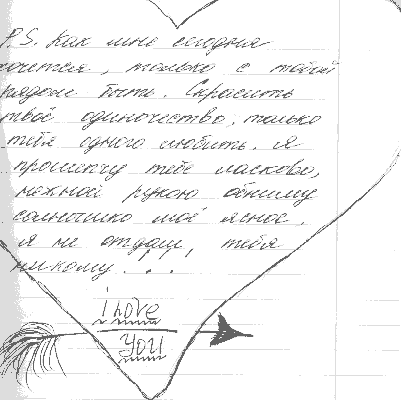 P.S. Как мне сегодня
хочется, только с тобой
рядом быть. Скрасить
твоё одиночество, только
тебя одного любить. Я
прошепчу тебе ласково,
нежной рукою обниму
солнышко моё ясное,
я не отдам, тебя
никому...
i Love
you